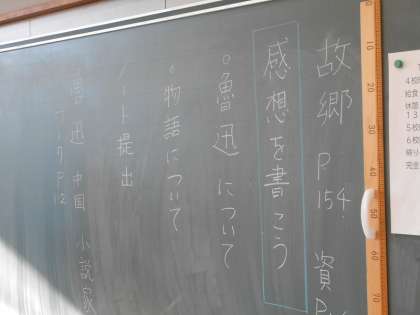 故郷 P154. 資P
感想を書こう
○魯迅について
○物語について
ノート提出
魯迅 中国 小説家
ワークP12
10
20
30
40
50
60
70
4校
給食
休憩
13
5校
6校
帰り
完全